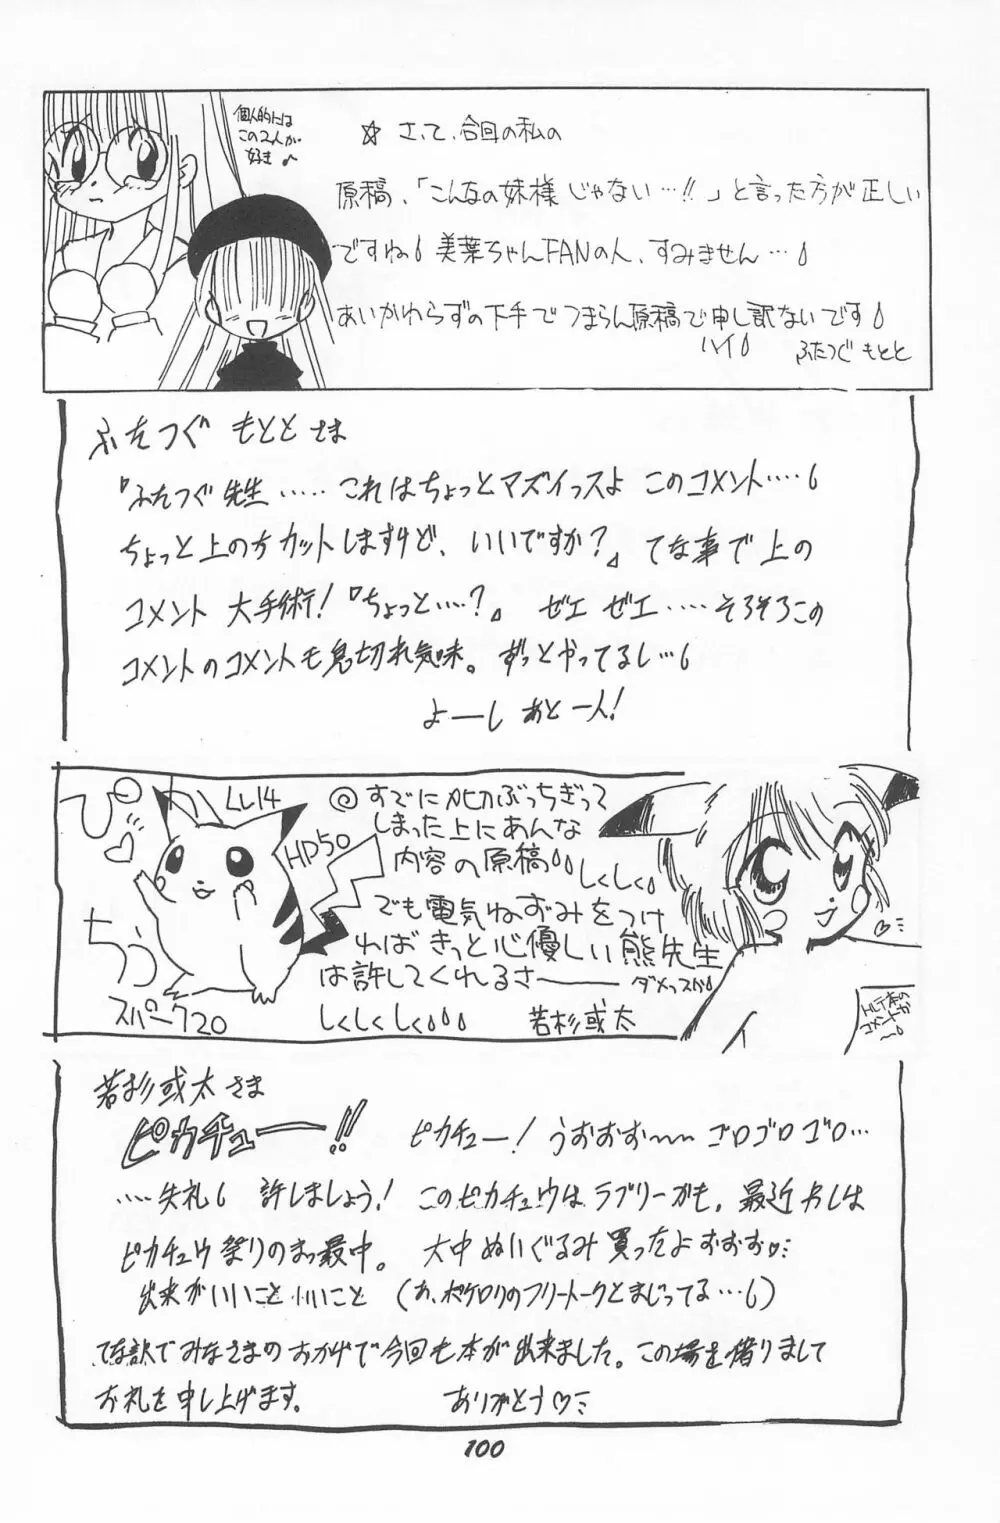 個人的には
この2人が
好き♪
☆ さて、今回の私の
原稿、「こんなの妹様じゃない…!!」と言った方が正しい
ですね 美葉ちゃんFANの人、すみません…
あいかわらずの下手でつまらん原稿で申し訳ないです
ハイ
ふたつぐ もとと
ふたつぐ もとと さま
『ふたつぐ先生…… これはちょっとマズイっスよ このコメント……
ちょっと上の方カットしますけど、いいですか?』てな事で上の
コメント 大手術!『ちょっと……?』 ゼエ ゼエ……そろそろこの
コメントのコメントも息切れ気味。ずっとやってるし…
よーし あと一人!
ぴ♡
かちう
LV14
HP50
スパーク20
◎すでに〆切ぶっちぎって
しまった上にあんな
内容の原稿
しくしく
でも電気ねずみをつけ
ればきっと心優しい熊先生
は許してくれるさ———
ダメっスか
しくしくしく
若杉或太
イ
コメントか
若杉或太 さま
ピカチュー!!
ピカチュー! うおおお〜〜 ゴロゴロゴロ…
……失礼 許しましょう! このピカチュウはラブリーかも。最近わしは
ピカチュウ祭りのまっ最中。 大中ぬいぐるみ買ったよおおお♡
出来がいいこと いいこと (あ、ポケロリのフリートークとまじってる…)
てな訳でみなさまのおかげで今回も本が出来ました。この場を借りまして
お礼を申し上げます。 ありがとう♡
100